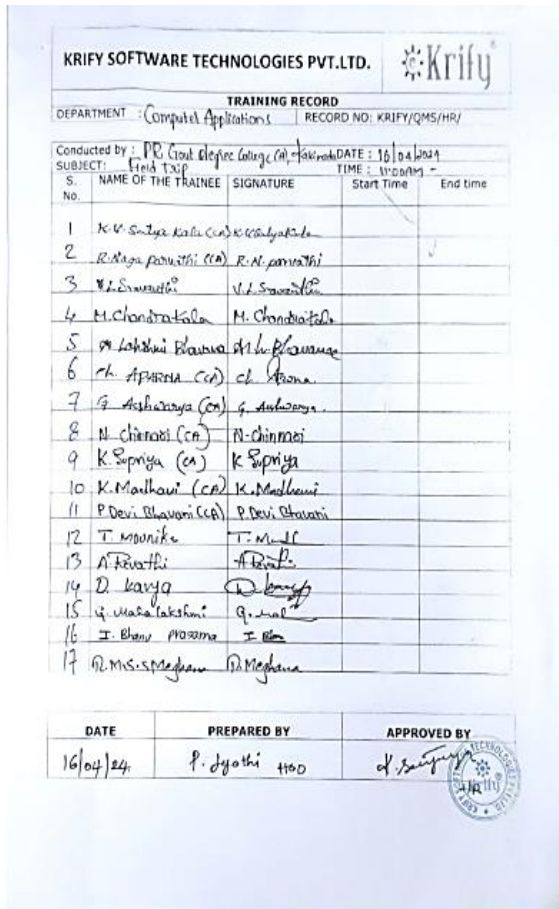 KRIFY SOFTWARE TECHNOLOGIES PVT.LTD. Krify
TRAINING RECORD
DEPARTMENT : Computer Applications RECORD NO: KRIFY/QMS/HR/
Conducted by : PR Govt Degree College (A) Kakinada DATE : 16/04/2024
SUBJECT: Field Trip TIME : 11:00AM -
S. No. NAME OF THE TRAINEE SIGNATURE Start Time End time
1 K.V. Satya Kala (CA) K.V. Satyakala
2 R. Naga parvathi (CA) R. N. parvathi
3 V.L. Sravanthi V.L. Sravanthi
4 M. Chandrakala M. Chandrakala
5 Lakshmi Bhavana
6 ch. APARNA (CA) ch.
7 G Aishwarya (CA) G. Aishwarya.
8 N. Chinnari (CA) N-Chinnari
9 K. Supriya (CA) K Supriya
10 K. Madhavi (CA) K. Madhavi
11 P. Devi Bhavani (CA) P. Devi Bhavani
12 T. Mounika T.
13 A Revathi A
14 D. kavya D
15 G. Maha lakshmi G.
16 I. Bhanu prasanna I
17 R.M.S.S Meghana R. Meghana
DATE PREPARED BY APPROVED BY
16/04/24. P. Jyothi HOD
HR